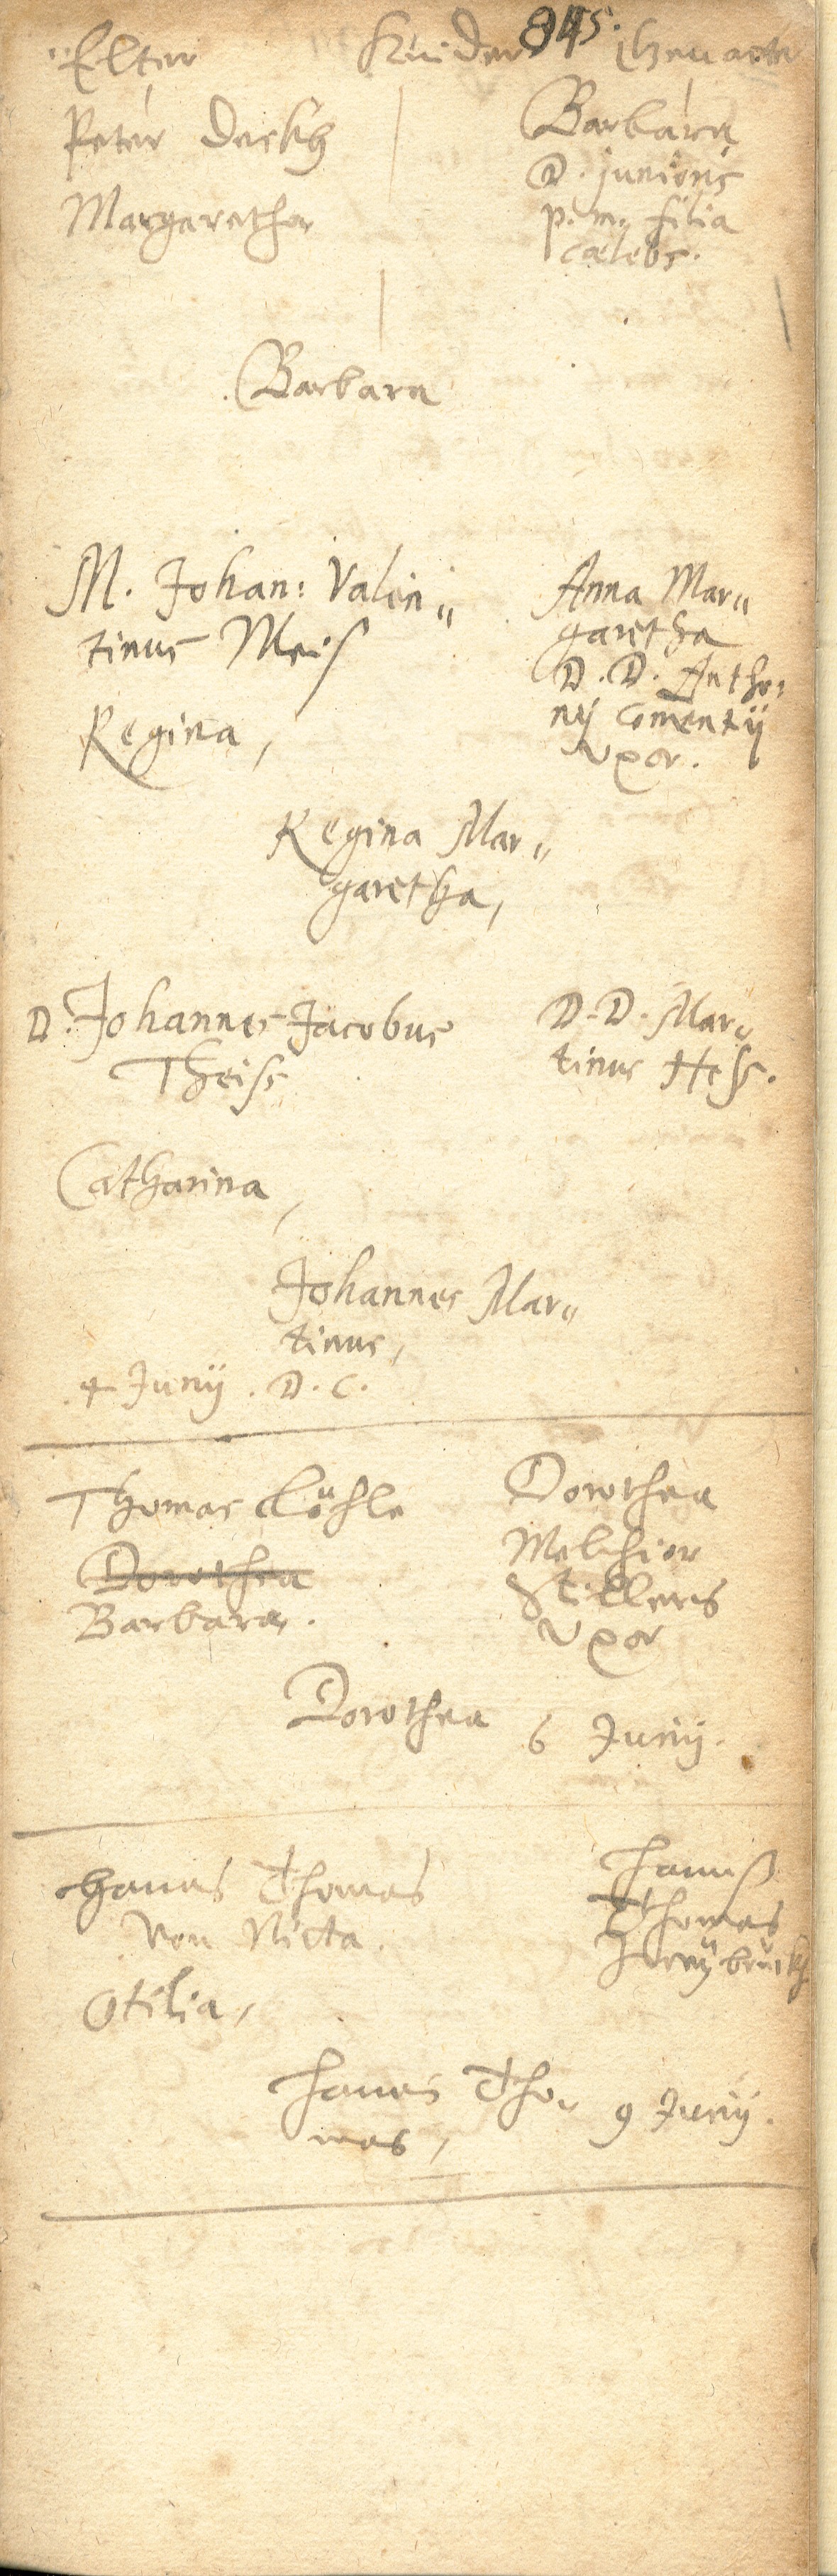 Elter Kinder 845. Gevatte
Peter Deckh
Margaretha
Barbara
D. junioris
p. m. filia
cælebs.
Barbara
M. Johan: Valen„
tinus Meis
Regina,
Anna Mar„
garetha
D. D. Antho„
nij Comentij
Vxor.
Regina Mar„
garetha,
D. Johannes Jacobus
Theiss
Catharina,
D. D. Mar„
tinus Hess.
Johannes Mar„
tinus,
4 Junij. D. C.
Thomas Löhle
Dorothea
Barbara.
Dorothea
Melchior
Stillers
Vxor
Dorothea 6 Junij.
Hanns Thomas
von Nitta.
Otilia,
Hanns
Thomas
Hanns Tho„
mas, 9 Junij.